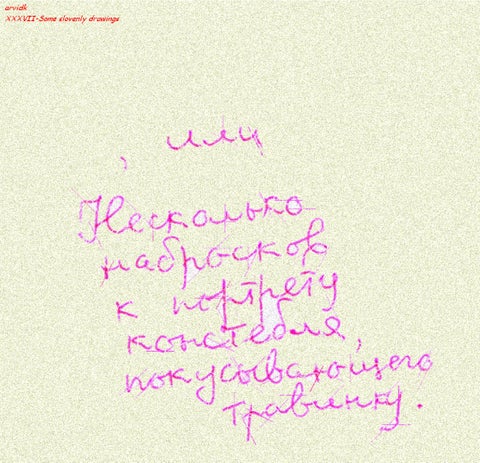 arvidk
XXXVII-Some slovenly drawings
, или
Несколько
набросков
к портрету
констебля,
покусывающего
травинку.